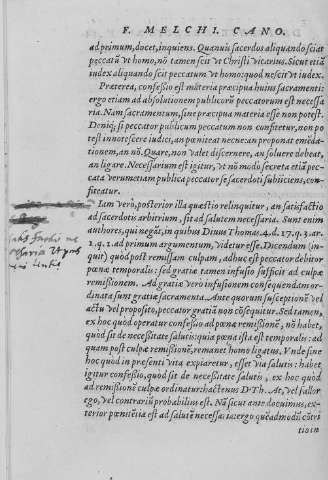 F. MELCHI. CANO.
ad primum, docet, inquiens. Quamuis sacerdos aliquando sciat
peccatũ vt homo, nõ tamen scit vt Christi vicarius. Sicut etiã
iudex aliquando scit peccatum vt homo: quod nescit vt iudex.
Præterea, confeßio est materia præcipua huius sacramenti:
ergo etiam ad absolutionem publicorũ peccatorum est necessa
ria. Nam sacramentum, sine præcipua materia esse non potest.
Deniq; si peccator publicum peccatum non confitetur, non po
test innotescere iudici, an pœniteat nec ne: an proponat emẽda-
tionem, an nõ. Quare, non valet discernere, an soluere debeat,
an ligare. Necessarium est igitur, vt nõ modò secreta etiã pec-
cata verumetiam publica peccator se sacerdoti subijciens, con-
fiteatur.
Iam verò, posterior illa quæstio relinquitur, an satisfactio
ad sacerdotis arbitrium, sit ad salutem necessaria. Sunt enim
authores, qui negãt, in quibus Diuus Thomas. 4. d. 17. q. 3. ar-
1. q. 2. ad primum argumentum, videtur esse. Dicendum (in-
quit) quod post remissam culpam, adhuc est peccator debitor
pœnæ temporalis: sed gratiæ tamen infusio sufficit ad culpæ
remißionem. Ad gratiæ verò infusionem consequendam or-
dinata sunt gratiæ sacramenta. Ante quorum susceptionẽ vel
actu vel proposito, peccator gratiã non cõsequitur. Sed tamen,
ex hoc quod operatur confeßio ad pœnæ remißionẽ, nõ habet,
quòd sit de neceßitate salutis: quia pœna ista est temporalis: ad
quam post culpæ remißionẽ, remanet homo ligatus. Vnde sine
hoc quòd in præsenti vita expiaretur, esset via salutis: habet
igitur confeßio, quòd sit de neceßitate salutis, ex hoc quod
ad remißionẽ culpæ ordinatur: hactenus D. Th. At, vel fallor
ego, vel contrariũ probabilius est. Nã sicut ante docuimus, ex-
terior pœnitẽtia est ad salutẽ necessaria: ergo quẽadmodũ cõtri
tioni